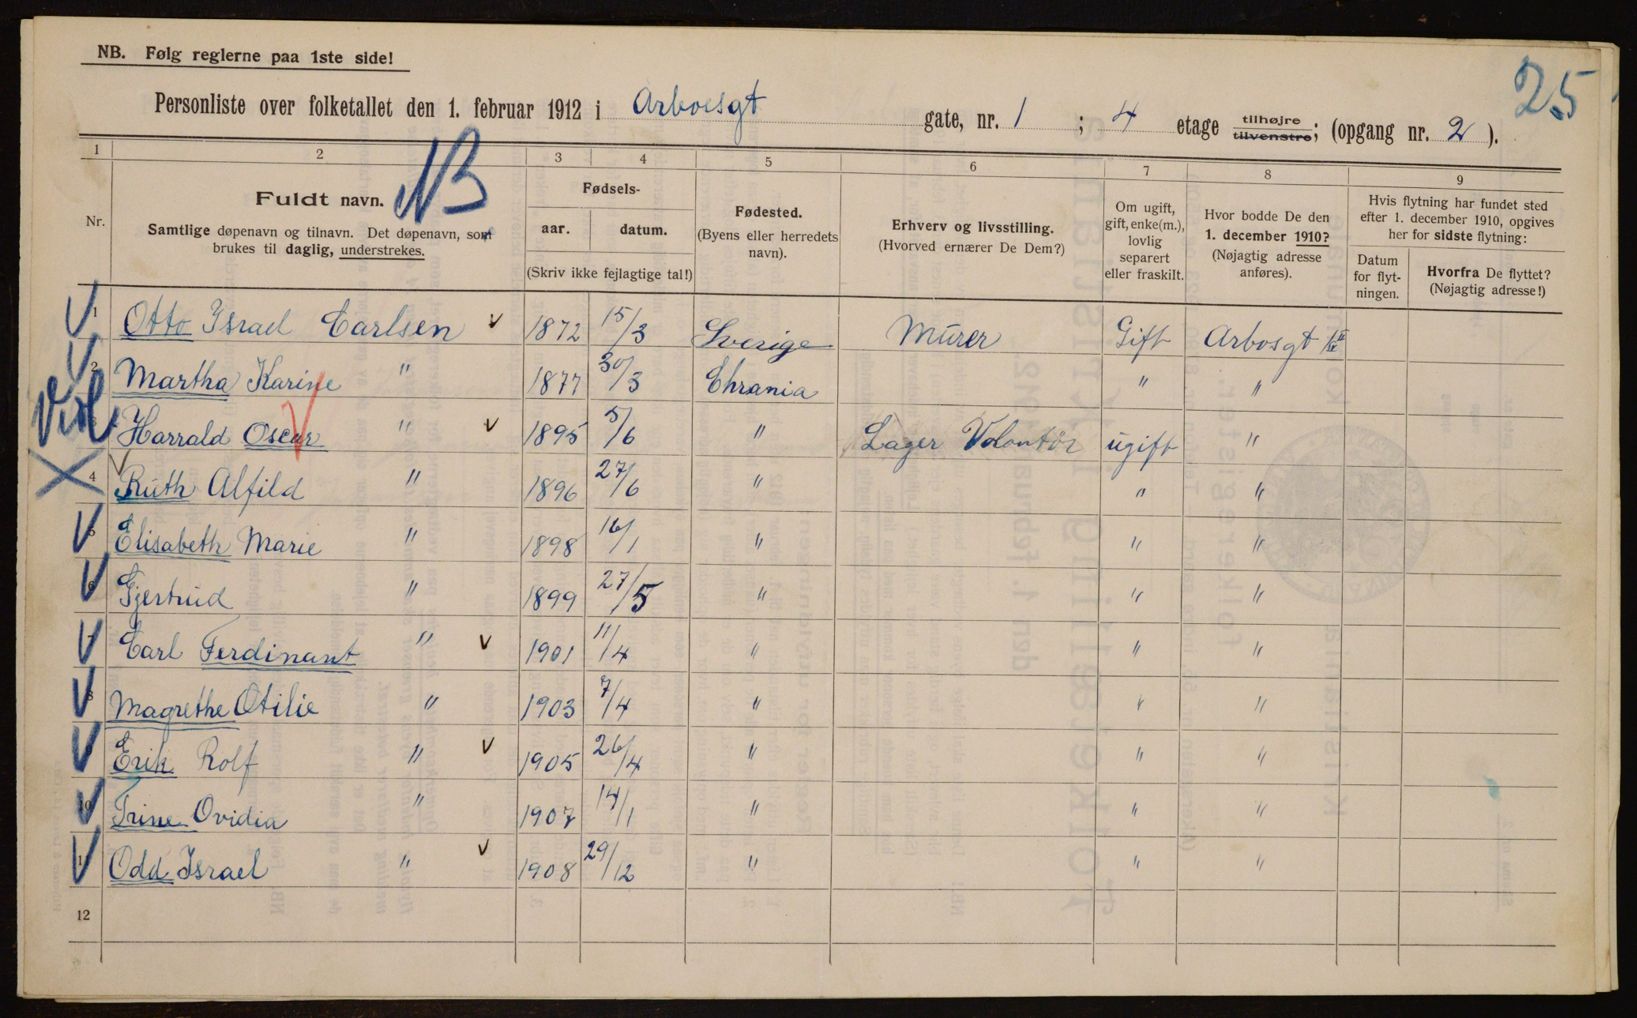 NB. Følg reglerne paa 1ste side!
25
Personliste over folketallet den 1. februar 1912 i Arboesgt gate, nr. 1 ; 4 etage tilhøjre tilvenstre; (opgang nr. 2 ).
1 2 3 4 5 6 7 8 9
NB
Nr.
Fuldt navn.
Samtlige døpenavn og tilnavn. Det døpenavn, som
brukes til daglig, understrekes.
Fødsels-
aar. datum.
(Skriv ikke fejlagtige tal!)
Fødested.
(Byens eller herredets
navn).
Erhverv og livsstilling.
(Hvorved ernærer De Dem?)
Om ugift,
gift, enke(m.),
lovlig
separert
eller fraskilt.
Hvor bodde De den
1. december 1910?
(Nøjagtig adresse
anføres).
Hvis flytning har fundet sted
efter 1. december 1910, opgives
her for sidste flytning:
Datum
for flyt-
ningen.
Hvorfra De flyttet?
(Nøjagtig adresse!)
1 Otto Israel Carlsen 1872 15/3 Sverige Murer Gift Arbosgt
2 Martha Karine " 1877 30/3 Chrania " "
Harrald Oscar " 1895 5/6 " Lager Volontör ugift "
4 Ruth Alfild " 1896 27/6 " " "
5 Elisabeth Marie " 1898 16/1 " " "
6 Gjertrud " 1899 27/5 " " "
7 Carl Ferdinant " 1901 11/4 " " "
8 Magrethe Otilie " 1903 7/4 " " "
Erik Rolf " 1905 26/4 " " "
10 Trine Ovidia " 1907 14/1 " " "
11 Odd Israel " 1908 29/12 " " "
12